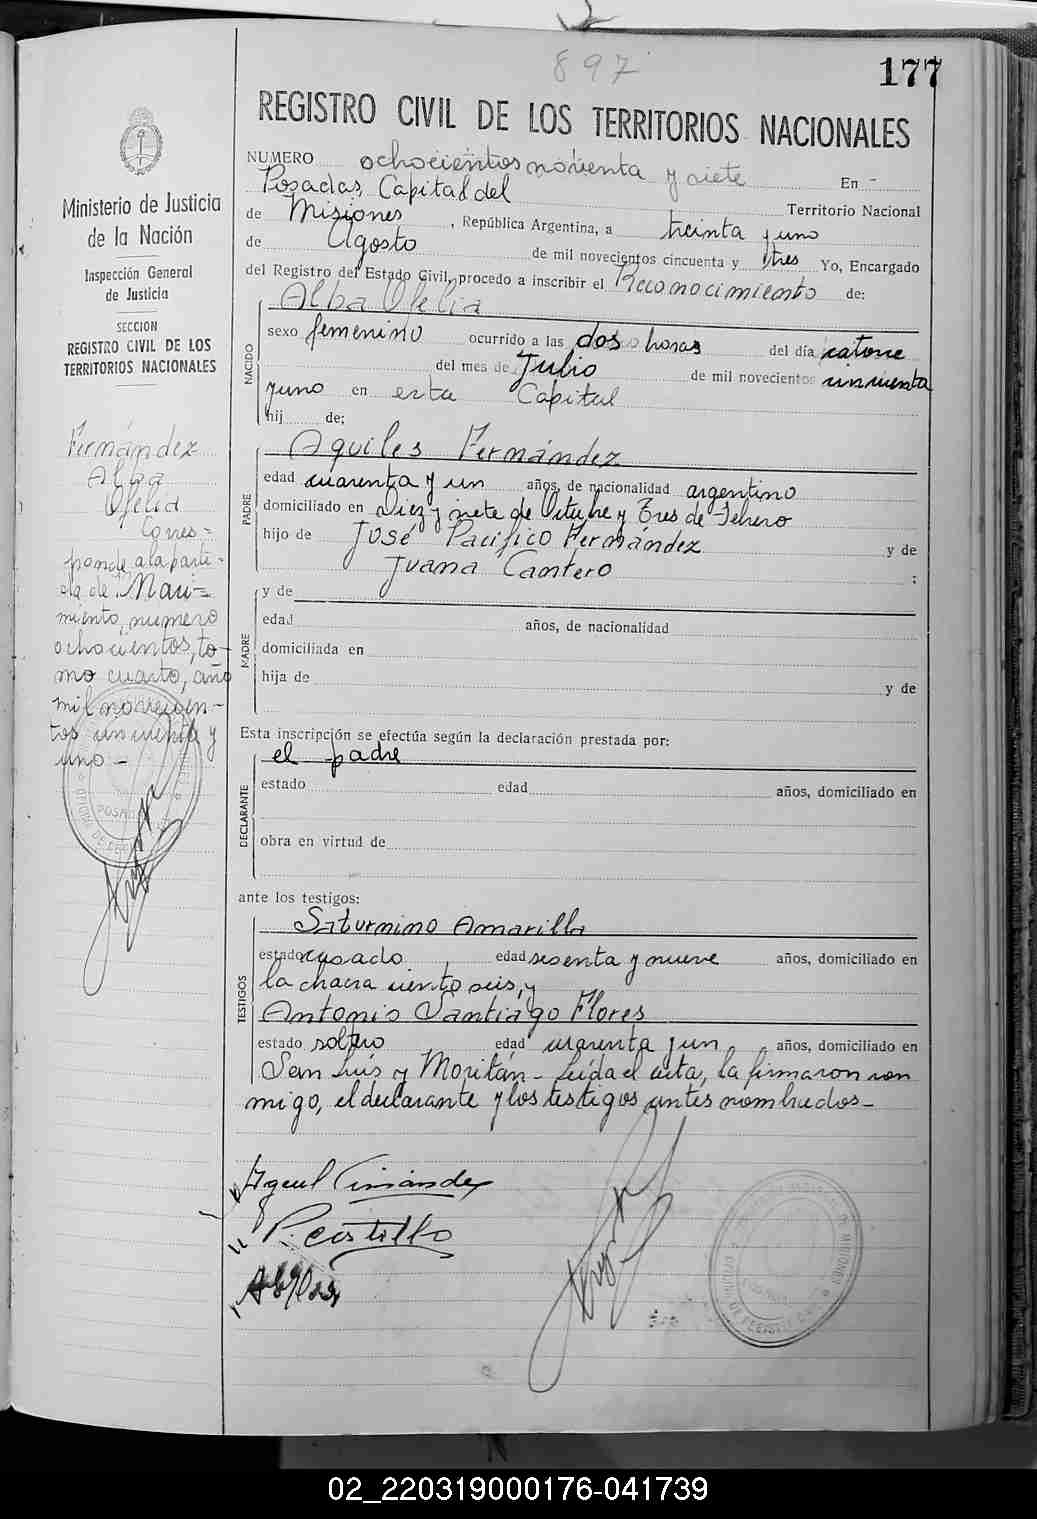 897
177
REGISTRO CIVIL DE LOS TERRITORIOS NACIONALES
NUMERO ochocientos noventa y siete En
Posadas, Capital del Territorio Nacional
de Misiones, República Argentina, a treinta y uno
de Agosto de mil novecientos cincuenta y tres Yo, Encargado
del Registro del Estado Civil, procedo a inscribir el Reconocimiento de:
Alba Ofelia
NACIDO
sexo femenino ocurrido a las dos horas del día catorce
del mes de Julio de mil novecientos cincuenta
y uno en esta Capital
hij de;
PADRE
Aquiles Fernández
edad cuarenta y un años, de nacionalidad argentino
domiciliado en Diez y siete de Octubre y Tres de Febrero
hijo de José Pacífico Fernández y de
Juana Cantero ;
MADRE
y de
edad años, de nacionalidad
domiciliada en
hija de y de
Esta inscripción se efectúa según la declaración prestada por:
DECLARANTE
el padre
estado edad años, domiciliado en
obra en virtud de
ante los testigos:
TESTIGOS
Saturnino Amarilla
estado casado edad sesenta y nueve años, domiciliado en
la chacra ciento seis, y
Antonio Santiago Flores
estado soltero edad cuarenta y un años, domiciliado en
San Luis y Moritán - Leída el acta, la firmaron con
migo, el declarante y los testigos antes nombrados -
Ministerio de Justicia
de la Nación
Inspección General
de Justicia
SECCION
REGISTRO CIVIL DE LOS
TERRITORIOS NACIONALES
Fernández
Alba
Ofelia
Corres=
ponde a la parti-
da de Naci=
miento, número
ochocientos, to-
mo cuarto, año
mil novecien-
tos cincuenta y
uno -
POSADAS
P. Castillo
MISIONES
02_220319000176-041739